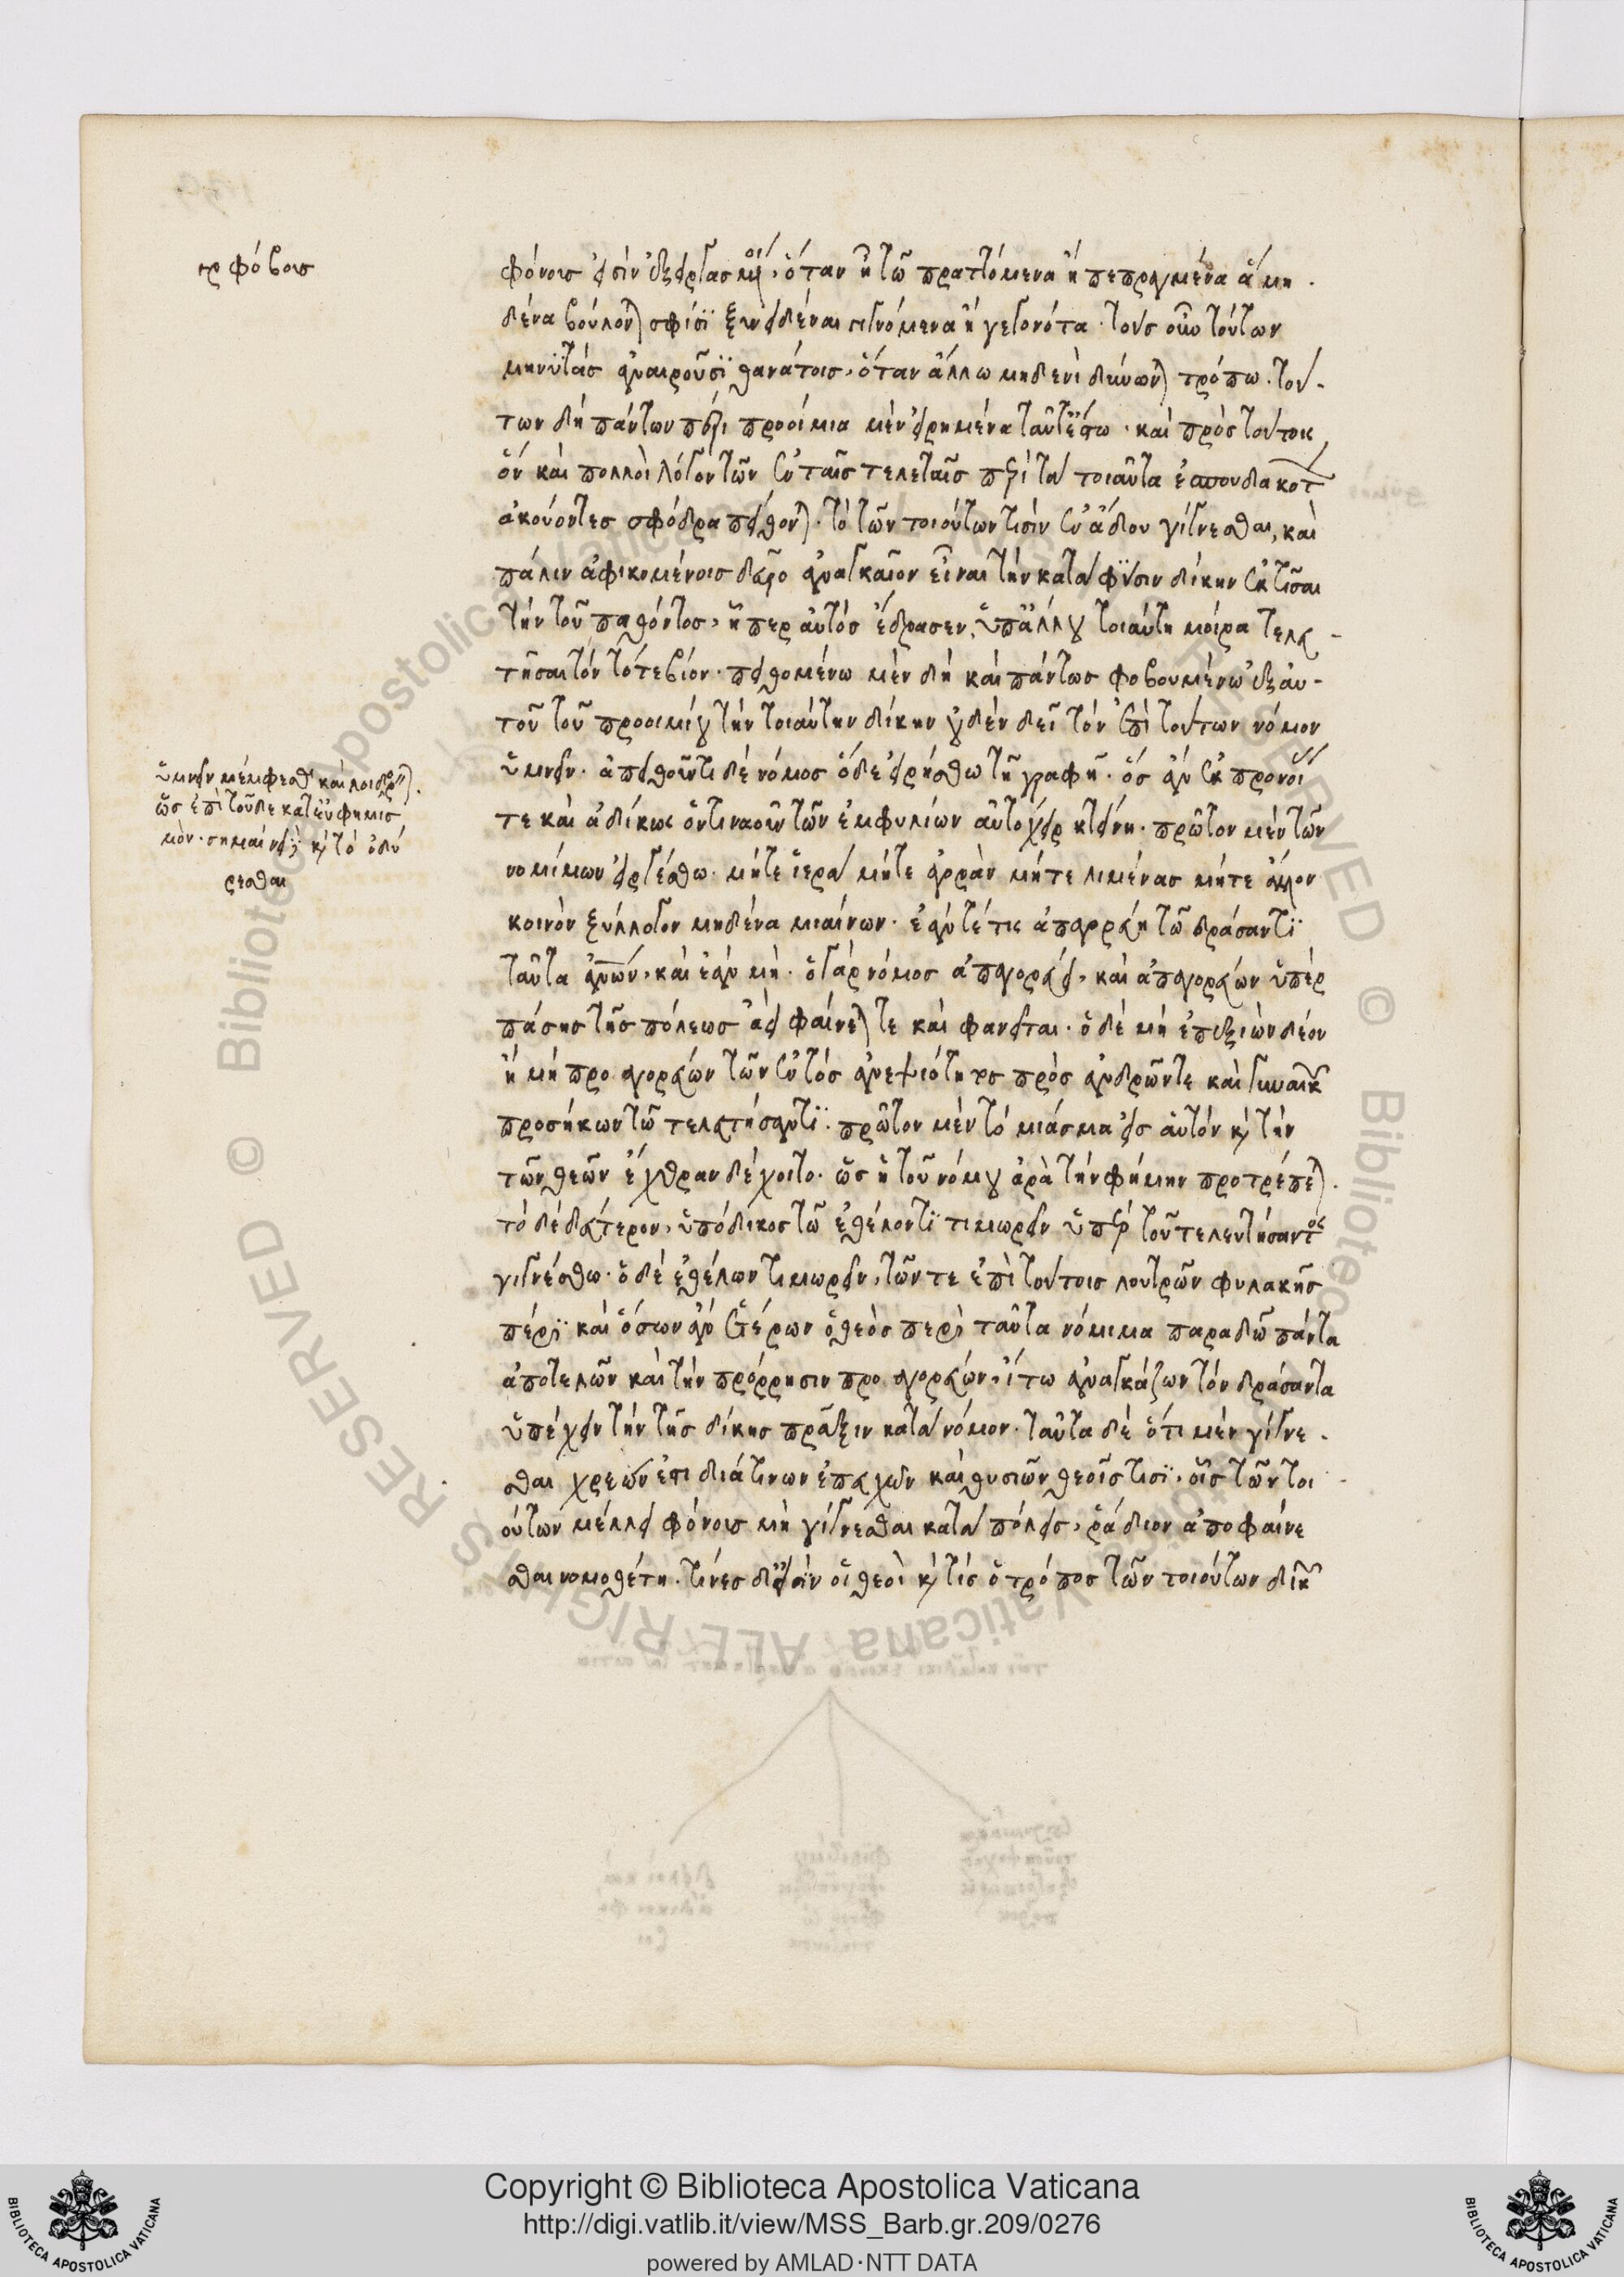 γρ φόβοις
φόνους εἰσὶν ἐξειργασμένοι, ὅταν ᾖ τῳ πραττόμενα ἢ πεπραγμένα ἃ μη-
δένα βούλονται σφίσι ξυνειδέναι γιγνόμενα ἢ γεγονότα. τοὺς οὖν τούτων
μηνυτὰς ἀναιροῦσι θανάτοις, ὅταν ἄλλω μηδενὶ δύνωνται τρόπω. τού-
των δὴ πάντων πέρι προοίμια μὲν εἰρημένα ταῦτ' ἔστω. καὶ πρὸς τούτοις
ὃν καὶ πολλοὶ λόγον τῶν ἐν ταῖς τελεταῖς περὶ τὰ τοιαῦτα ἐσπουδακότων
ἀκούοντες σφόδρα πείθονται. τὸ τῶν τοιούτων τίσιν ἐν ἅδου γίγνεσθαι, καὶ
πάλιν ἀφικομένοις δεῦρο ἀναγκαῖον εἶναι τὴν κατὰ φύσιν δίκην ἐκτίσαι
τὴν τοῦ παθόντος, ἥπερ αὐτὸς ἔδρασεν, ὑπ' ἄλλου τοιαύτη μοίρα τελευ-
τῆσαι τὸν τότε βίον. πειθομένω μὲν δὴ καὶ πάντως φοβουμένω ἐξ αὐ-
τοῦ τοῦ προοιμίου τὴν τοιαύτην δίκην οὐδὲν δεῖ τὸν ἐπὶ τούτων νόμον
ὑμνεῖν. ἀπειθοῦντι δὲ νόμος ὅδε εἰρήσθω τῇ γραφῇ. ὃς ἂν ἐκ προνοίας
ὑμνεῖν μέμφεσθαι καὶ λοιδορεῖσθαι.
ὡς ἐπὶ τοῦδε κατ' εὐφημισ
μόν. σημαίνει καὶ τὸ ὀδύ
ρεσθαι
τε καὶ ἀδίκως ὁντιναοῦν τῶν ἐμφυλίων αὐτόχειρ κτείνῃ. πρῶτον μὲν τῶν
νομίμων εἰργέσθω. μήτε ἱερὰ μήτε ἀγορὰν μήτε λιμένας μήτε ἄλλον
κοινὸν ξύλλογον μηδένα μιαίνων. ἐάν τέ τις ἀπαγορεύῃ τῶ δράσαντι
ταῦτα ἀνθρώπων, καὶ ἐὰν μή. ὁ γὰρ νόμος ἀπαγορεύει, καὶ ἀπαγορεύων ὑπὲρ
πάσης τῆς πόλεως ἀεὶ φαίνεταί τε καὶ φανεῖται. ὁ δὲ μὴ ἐπεξιὼν δέον
ἢ μὴ προαγορεύων τῶν ἐντὸς ἀνεψιότητος πρὸς ἀνδρῶν τε καὶ γυναικῶν
προσήκων τῶ τελευτήσαντι. πρῶτον μὲν τὸ μίασμα εἰς αὐτὸν καὶ τὴν
τῶν θεῶν ἔχθραν δέχοιτο. ὡς ἡ τοῦ νόμου ἀρὰ τὴν φήμην προτρέπεται.
τὸ δὲ δεύτερον, ὑπόδικος τῶ ἐθέλοντι τιμωρεῖν ὑπὲρ τοῦ τελευτήσαντος
γιγνέσθω. ὁ δὲ ἐθέλων τιμωρεῖν, τῶν τε ἐπὶ τούτοις λουτρῶν φυλακῆς
πέρι καὶ ὅσων ἂν ἑτέρων ὁ θεὸς περὶ ταῦτα νόμιμα παραδῶ πάντα
ἀποτελῶν καὶ τὴν πρόρρησιν προαγορεύων, ἴτω ἀναγκάζων τὸν δράσαντα
ὑπέχειν τὴν τῆς δίκης πρᾶξιν κατὰ νόμον. ταῦτα δὲ ὅτι μὲν γίγνε-
σθαι χρεών ἐστι διά τινων ἐπευχῶν καὶ θυσιῶν θεοῖς τισι, οἷς τῶν τοι-
ούτων μέλλει φόνους μὴ γίγνεσθαι κατὰ πόλεις, ῥάδιον ἀποφαίνε
σθαι νομοθέτῃ. τίνες δ' εἰσὶν οἱ θεοὶ καὶ τίς ὁ τρόπος τῶν τοιούτων δικῶν
Copyright © Biblioteca Apostolica Vaticana
http://digi.vatlib.it/view/MSS_Barb.gr.209/0276
powered by AMLAD·NTT DATA